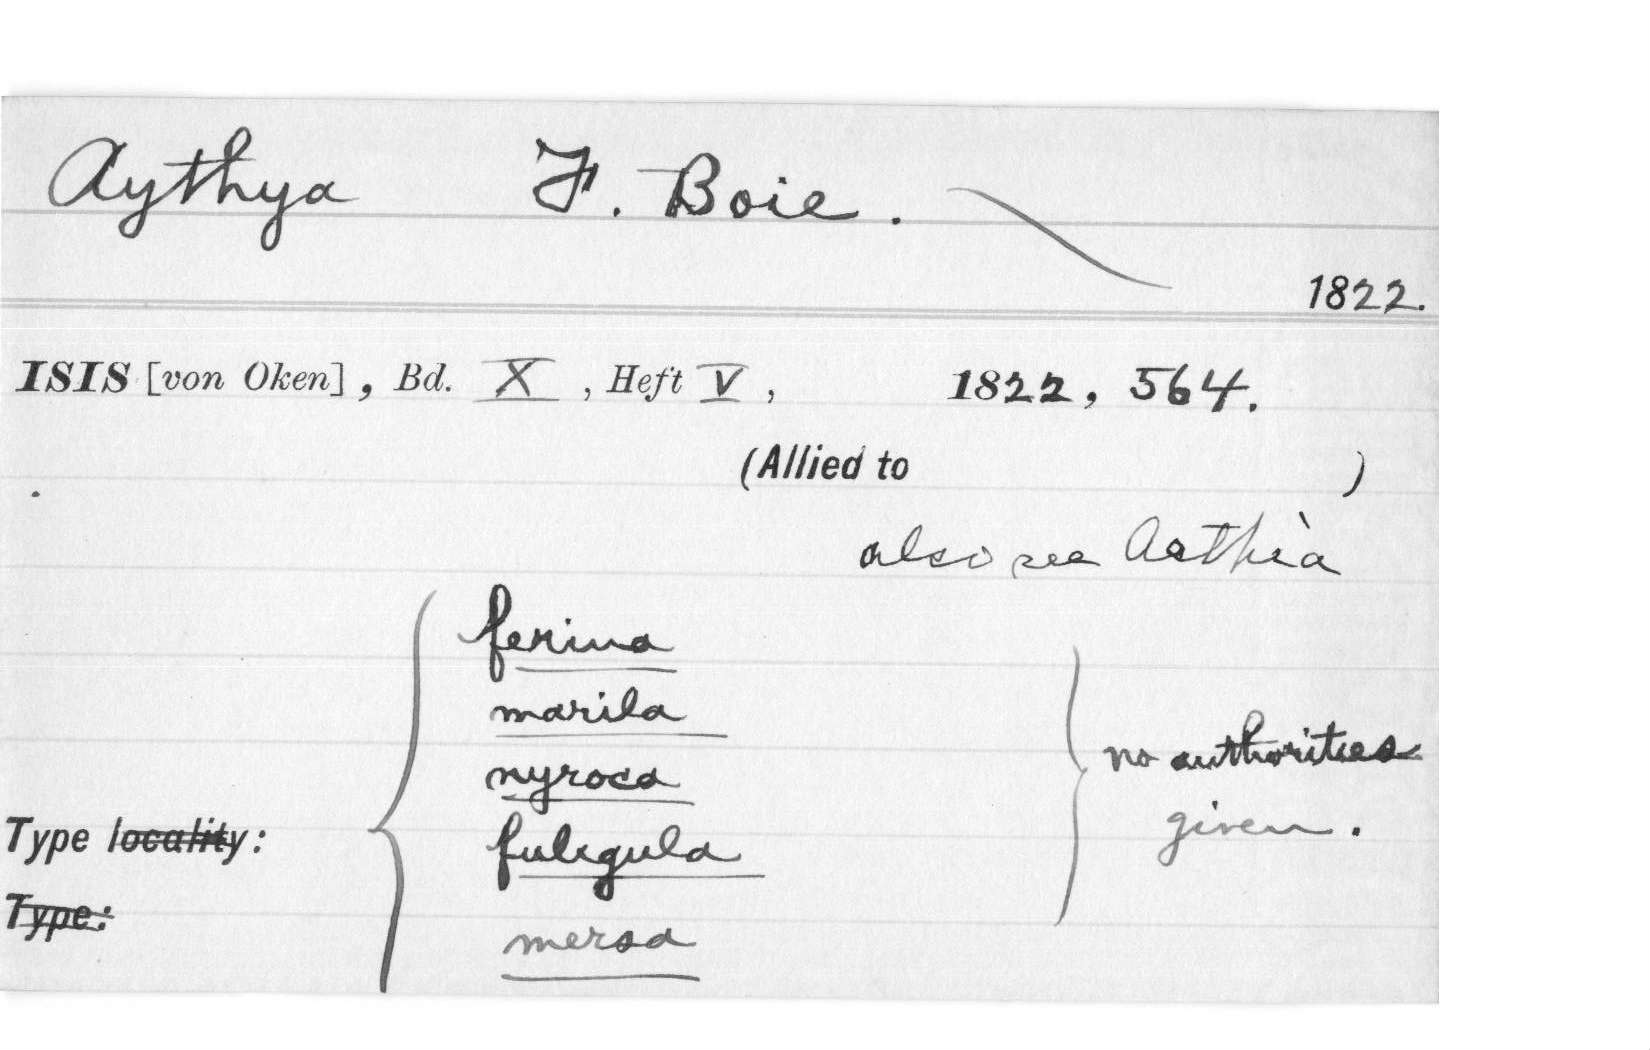 Aythya F. Boie.
1822.
ISIS [von Oken], Bd. X, Heft V, 1822, 564.
(Allied to )
also see Aethia
ferina
marila
nyroca
fuligula
mersa
no authorities
given.
Type locality:
Type: